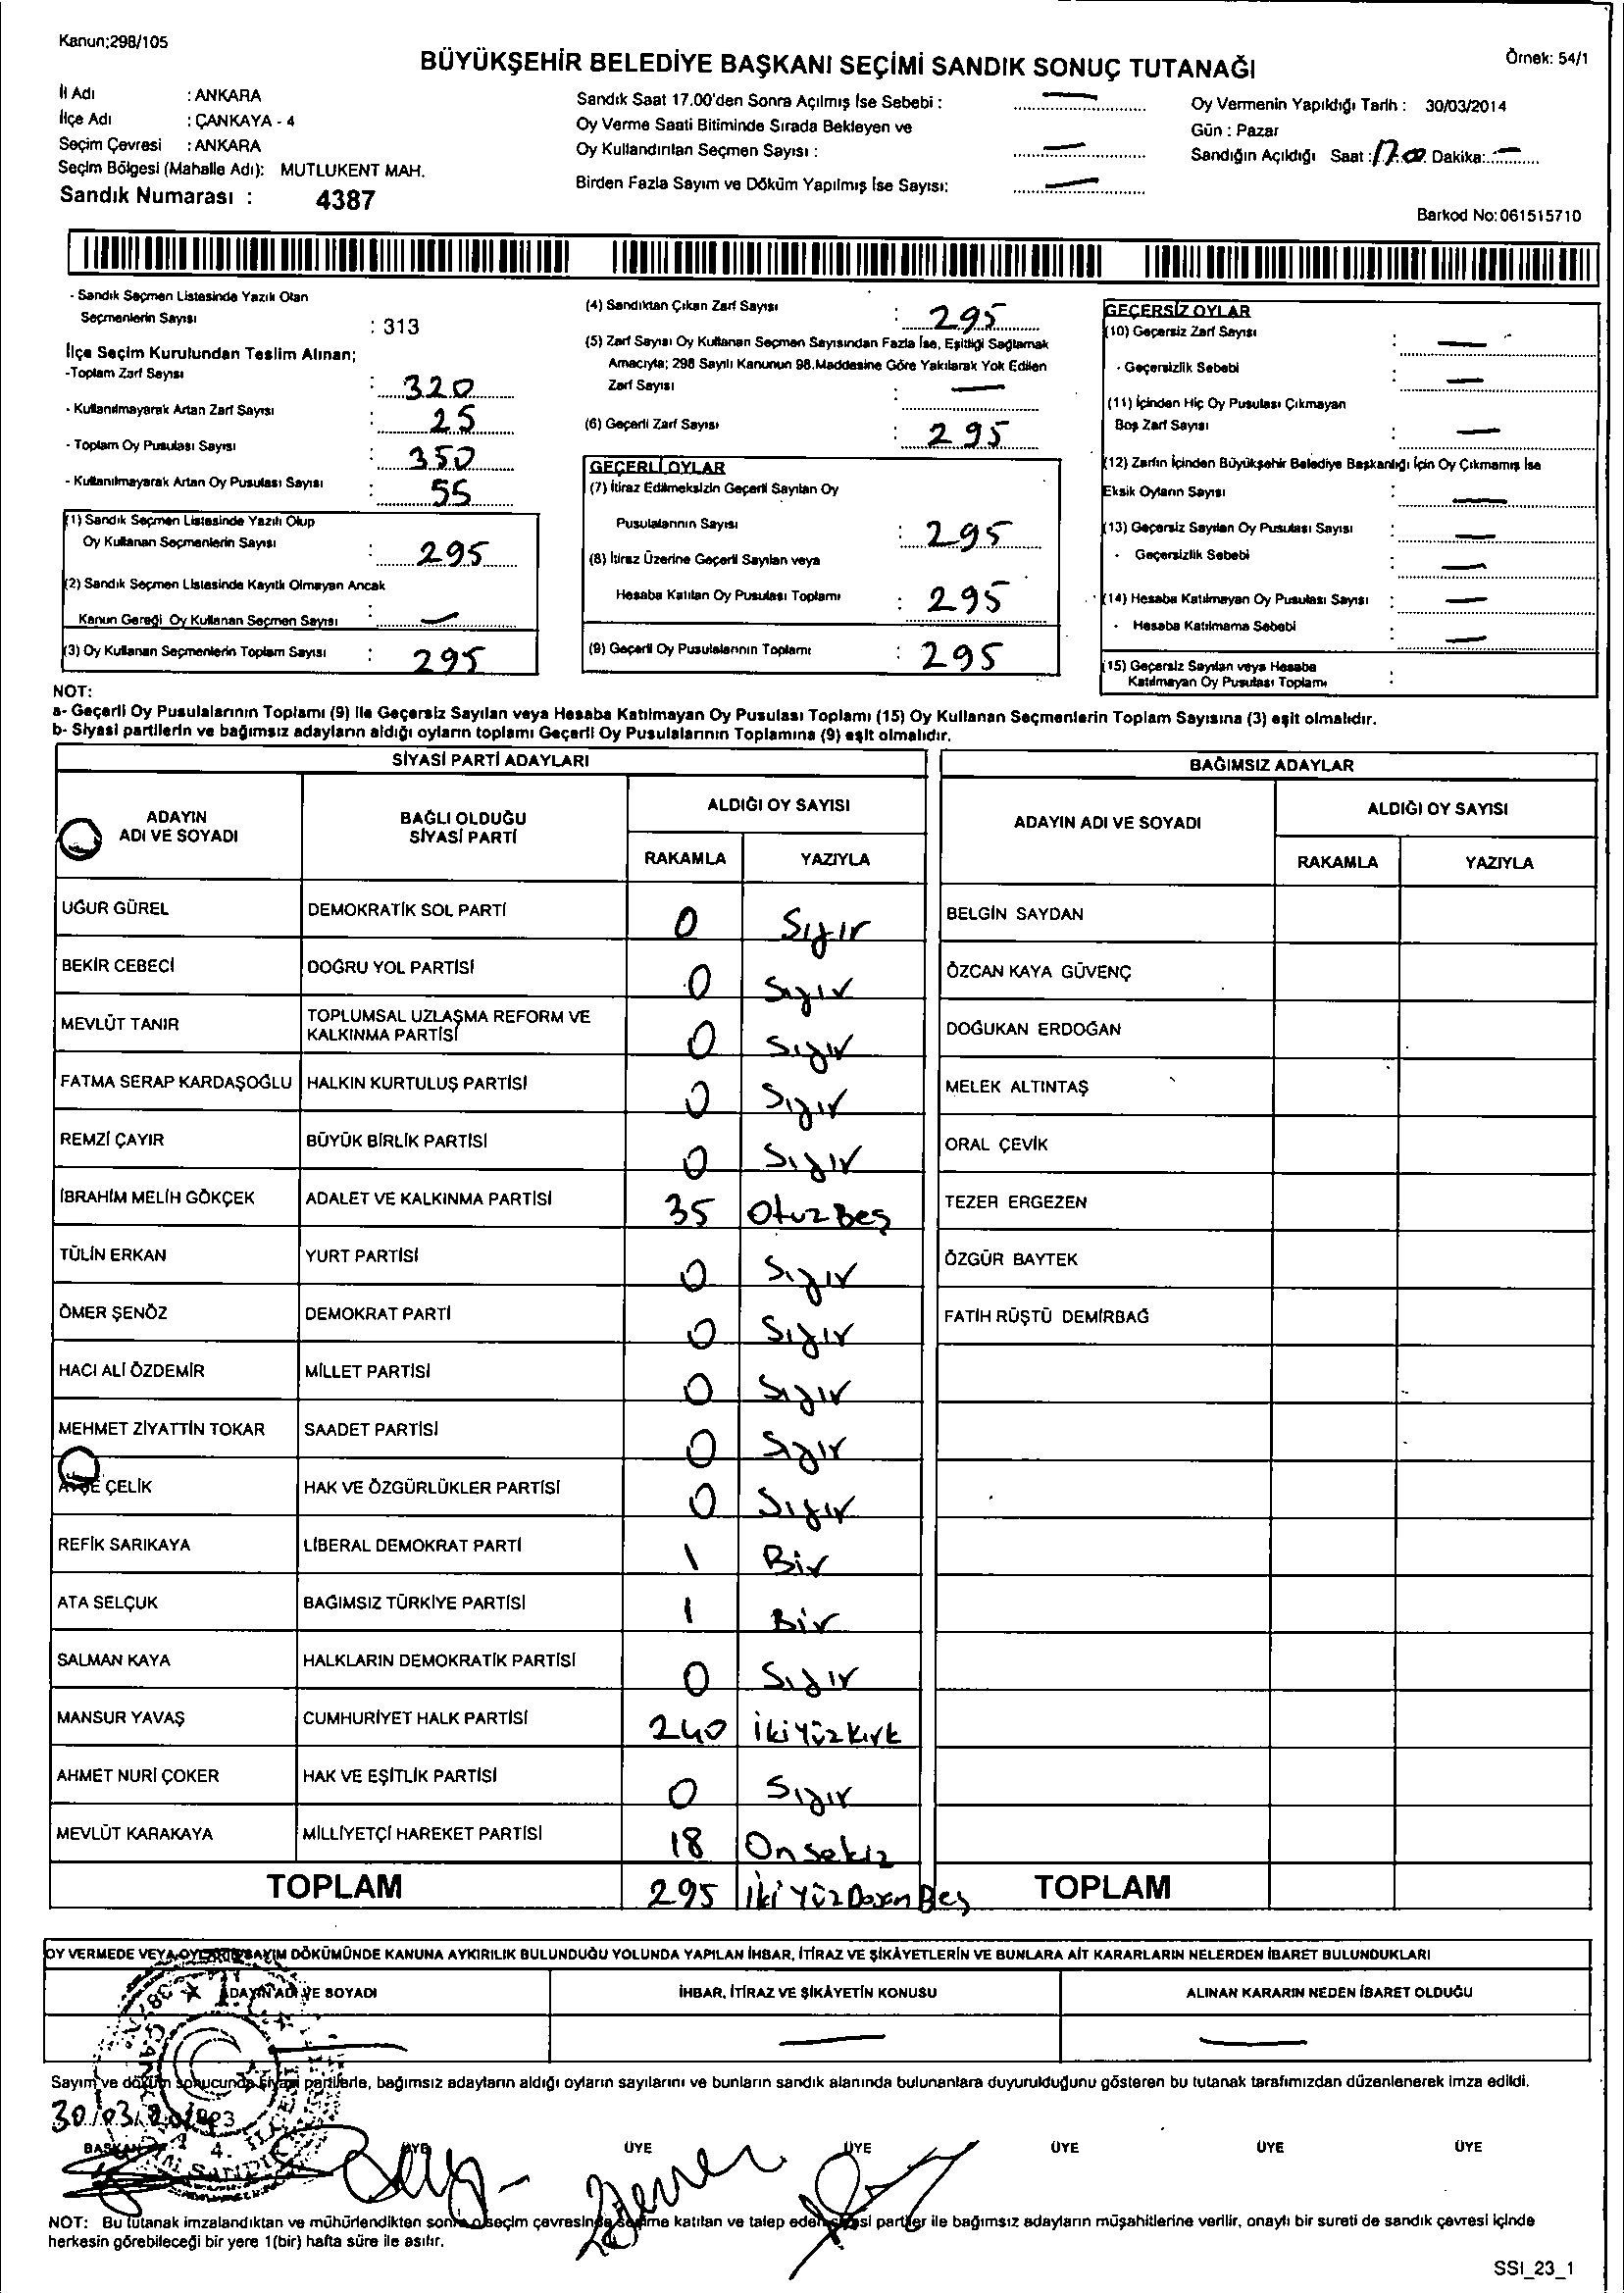 Kanun;298/105
BÜYÜKŞEHİR BELEDİYE BAŞKANI SEÇİMİ SANDIK SONUÇ TUTANAĞI
Örnek: 54/1
İl Adı : ANKARA
İlçe Adı : ÇANKAYA - 4
Seçim Çevresi : ANKARA
Seçim Bölgesi (Mahalle Adı): MUTLUKENT MAH.
Sandık Numarası : 4387
Sandık Saat 17.00'den Sonra Açılmış İse Sebebi : —
Oy Verme Saati Bitiminde Sırada Bekleyen ve
Oy Kullandırılan Seçmen Sayısı : —
Birden Fazla Sayım ve Döküm Yapılmış İse Sayısı: —
Oy Vermenin Yapıldığı Tarih : 30/03/2014
Gün : Pazar
Sandığın Açıldığı Saat : 17.00 Dakika: —
Barkod No: 061515710
- Sandık Seçmen Listesinde Yazılı Olan
Seçmenlerin Sayısı : 313
İlçe Seçim Kurulundan Teslim Alınan;
-Toplam Zarf Sayısı : 320
- Kullanılmayarak Artan Zarf Sayısı : 25
- Toplam Oy Pusulası Sayısı : 350
- Kullanılmayarak Artan Oy Pusulası Sayısı : 55
(1) Sandık Seçmen Listesinde Yazılı Olup
Oy Kullanan Seçmenlerin Sayısı : 295
(2) Sandık Seçmen Listesinde Kayıtlı Olmayan Ancak
Kanun Gereği Oy Kullanan Seçmen Sayısı : —
(3) Oy Kullanan Seçmenlerin Toplam Sayısı : 295
(4) Sandıktan Çıkan Zarf Sayısı : 295
(5) Zarf Sayısı Oy Kullanan Seçmen Sayısından Fazla İse, Eşitliği Sağlamak
Amacıyla; 298 Sayılı Kanunun 98.Maddesine Göre Yakılarak Yok Edilen
Zarf Sayısı : —
(6) Geçerli Zarf Sayısı : 295
GEÇERLİ OYLAR
(7) İtiraz Edilmeksizin Geçerli Sayılan Oy
Pusulalarının Sayısı : 295
(8) İtiraz Üzerine Geçerli Sayılan veya
Hesaba Katılan Oy Pusulası Toplamı : 295
(9) Geçerli Oy Pusulalarının Toplamı : 295
GEÇERSİZ OYLAR
(10) Geçersiz Zarf Sayısı : —
- Geçersizlik Sebebi : —
(11) İçinden Hiç Oy Pusulası Çıkmayan
Boş Zarf Sayısı : —
(12) Zarfın İçinden Büyükşehir Belediye Başkanlığı İçin Oy Çıkmamış İse
Eksik Oyların Sayısı : —
(13) Geçersiz Sayılan Oy Pusulası Sayısı : —
- Geçersizlik Sebebi : —
(14) Hesaba Katılmayan Oy Pusulası Sayısı : —
- Hesaba Katılmama Sebebi : —
(15) Geçersiz Sayılan veya Hesaba
Katılmayan Oy Pusulası Toplamı :
NOT:
a- Geçerli Oy Pusulalarının Toplamı (9) ile Geçersiz Sayılan veya Hesaba Katılmayan Oy Pusulası Toplamı (15) Oy Kullanan Seçmenlerin Toplam Sayısına (3) eşit olmalıdır.
b- Siyasi partilerin ve bağımsız adayların aldığı oyların toplamı Geçerli Oy Pusulalarının Toplamına (9) eşit olmalıdır.
SİYASİ PARTİ ADAYLARI
ADAYIN ADI VE SOYADI
BAĞLI OLDUĞU SİYASİ PARTİ
ALDIĞI OY SAYISI
RAKAMLA YAZIYLA
UĞUR GÜREL DEMOKRATİK SOL PARTİ 0 Sıfır
BEKİR CEBECİ DOĞRU YOL PARTİSİ 0 Sıfır
MEVLÜT TANIR TOPLUMSAL UZLAŞMA REFORM VE KALKINMA PARTİSİ 0 Sıfır
FATMA SERAP KARDAŞOĞLU HALKIN KURTULUŞ PARTİSİ 0 Sıfır
REMZİ ÇAYIR BÜYÜK BİRLİK PARTİSİ 0 Sıfır
İBRAHİM MELİH GÖKÇEK ADALET VE KALKINMA PARTİSİ 35 Otuz Beş
TÜLİN ERKAN YURT PARTİSİ 0 Sıfır
ÖMER ŞENÖZ DEMOKRAT PARTİ 0 Sıfır
HACI ALİ ÖZDEMİR MİLLET PARTİSİ 0 Sıfır
MEHMET ZİYATTİN TOKAR SAADET PARTİSİ 0 Sıfır
AYŞE ÇELİK HAK VE ÖZGÜRLÜKLER PARTİSİ 0 Sıfır
REFİK SARIKAYA LİBERAL DEMOKRAT PARTİ 1 Bir
ATA SELÇUK BAĞIMSIZ TÜRKİYE PARTİSİ 1 Bir
SALMAN KAYA HALKLARIN DEMOKRATİK PARTİSİ 0 Sıfır
MANSUR YAVAŞ CUMHURİYET HALK PARTİSİ 240 İki Yüz Kırk
AHMET NURİ ÇOKER HAK VE EŞİTLİK PARTİSİ 0 Sıfır
MEVLÜT KARAKAYA MİLLİYETÇİ HAREKET PARTİSİ 18 On sekiz
TOPLAM 295 İki Yüz Doxan Beş
BAĞIMSIZ ADAYLAR
ADAYIN ADI VE SOYADI
ALDIĞI OY SAYISI
RAKAMLA YAZIYLA
BELGİN SAYDAN
ÖZCAN KAYA GÜVENÇ
DOĞUKAN ERDOĞAN
MELEK ALTINTAŞ
ORAL ÇEVİK
TEZER ERGEZEN
ÖZGÜR BAYTEK
FATİH RÜŞTÜ DEMİRBAĞ
TOPLAM
OY VERMEDE VEYA OYLARIN SAYIM DÖKÜMÜNDE KANUNA AYKIRILIK BULUNDUĞU YOLUNDA YAPILAN İHBAR, İTİRAZ VE ŞİKÂYETLERİN VE BUNLARA AİT KARARLARIN NELERDEN İBARET BULUNDUKLARI
ADAYIN ADI VE SOYADI
İHBAR, İTİRAZ VE ŞİKÂYETİN KONUSU
ALINAN KARARIN NEDEN İBARET OLDUĞU
— — —
Sayım ve döküm sonucunda siyasi partilerle, bağımsız adayların aldığı oyların sayılarını ve bunların sandık alanında bulunanlara duyurulduğunu gösteren bu tutanak tarafımızdan düzenlenerek imza edildi.
30/03/2014
BAŞKAN ÜYE ÜYE ÜYE ÜYE ÜYE ÜYE
NOT: Bu tutanak imzalandıktan ve mühürlendikten sonra o seçim çevresinde seçime katılan ve talep eden siyasi partiler ile bağımsız adayların müşahitlerine verilir, onaylı bir sureti de sandık çevresi içinde
herkesin görebileceği bir yere 1(bir) hafta süre ile asılır.
SSI_23_1